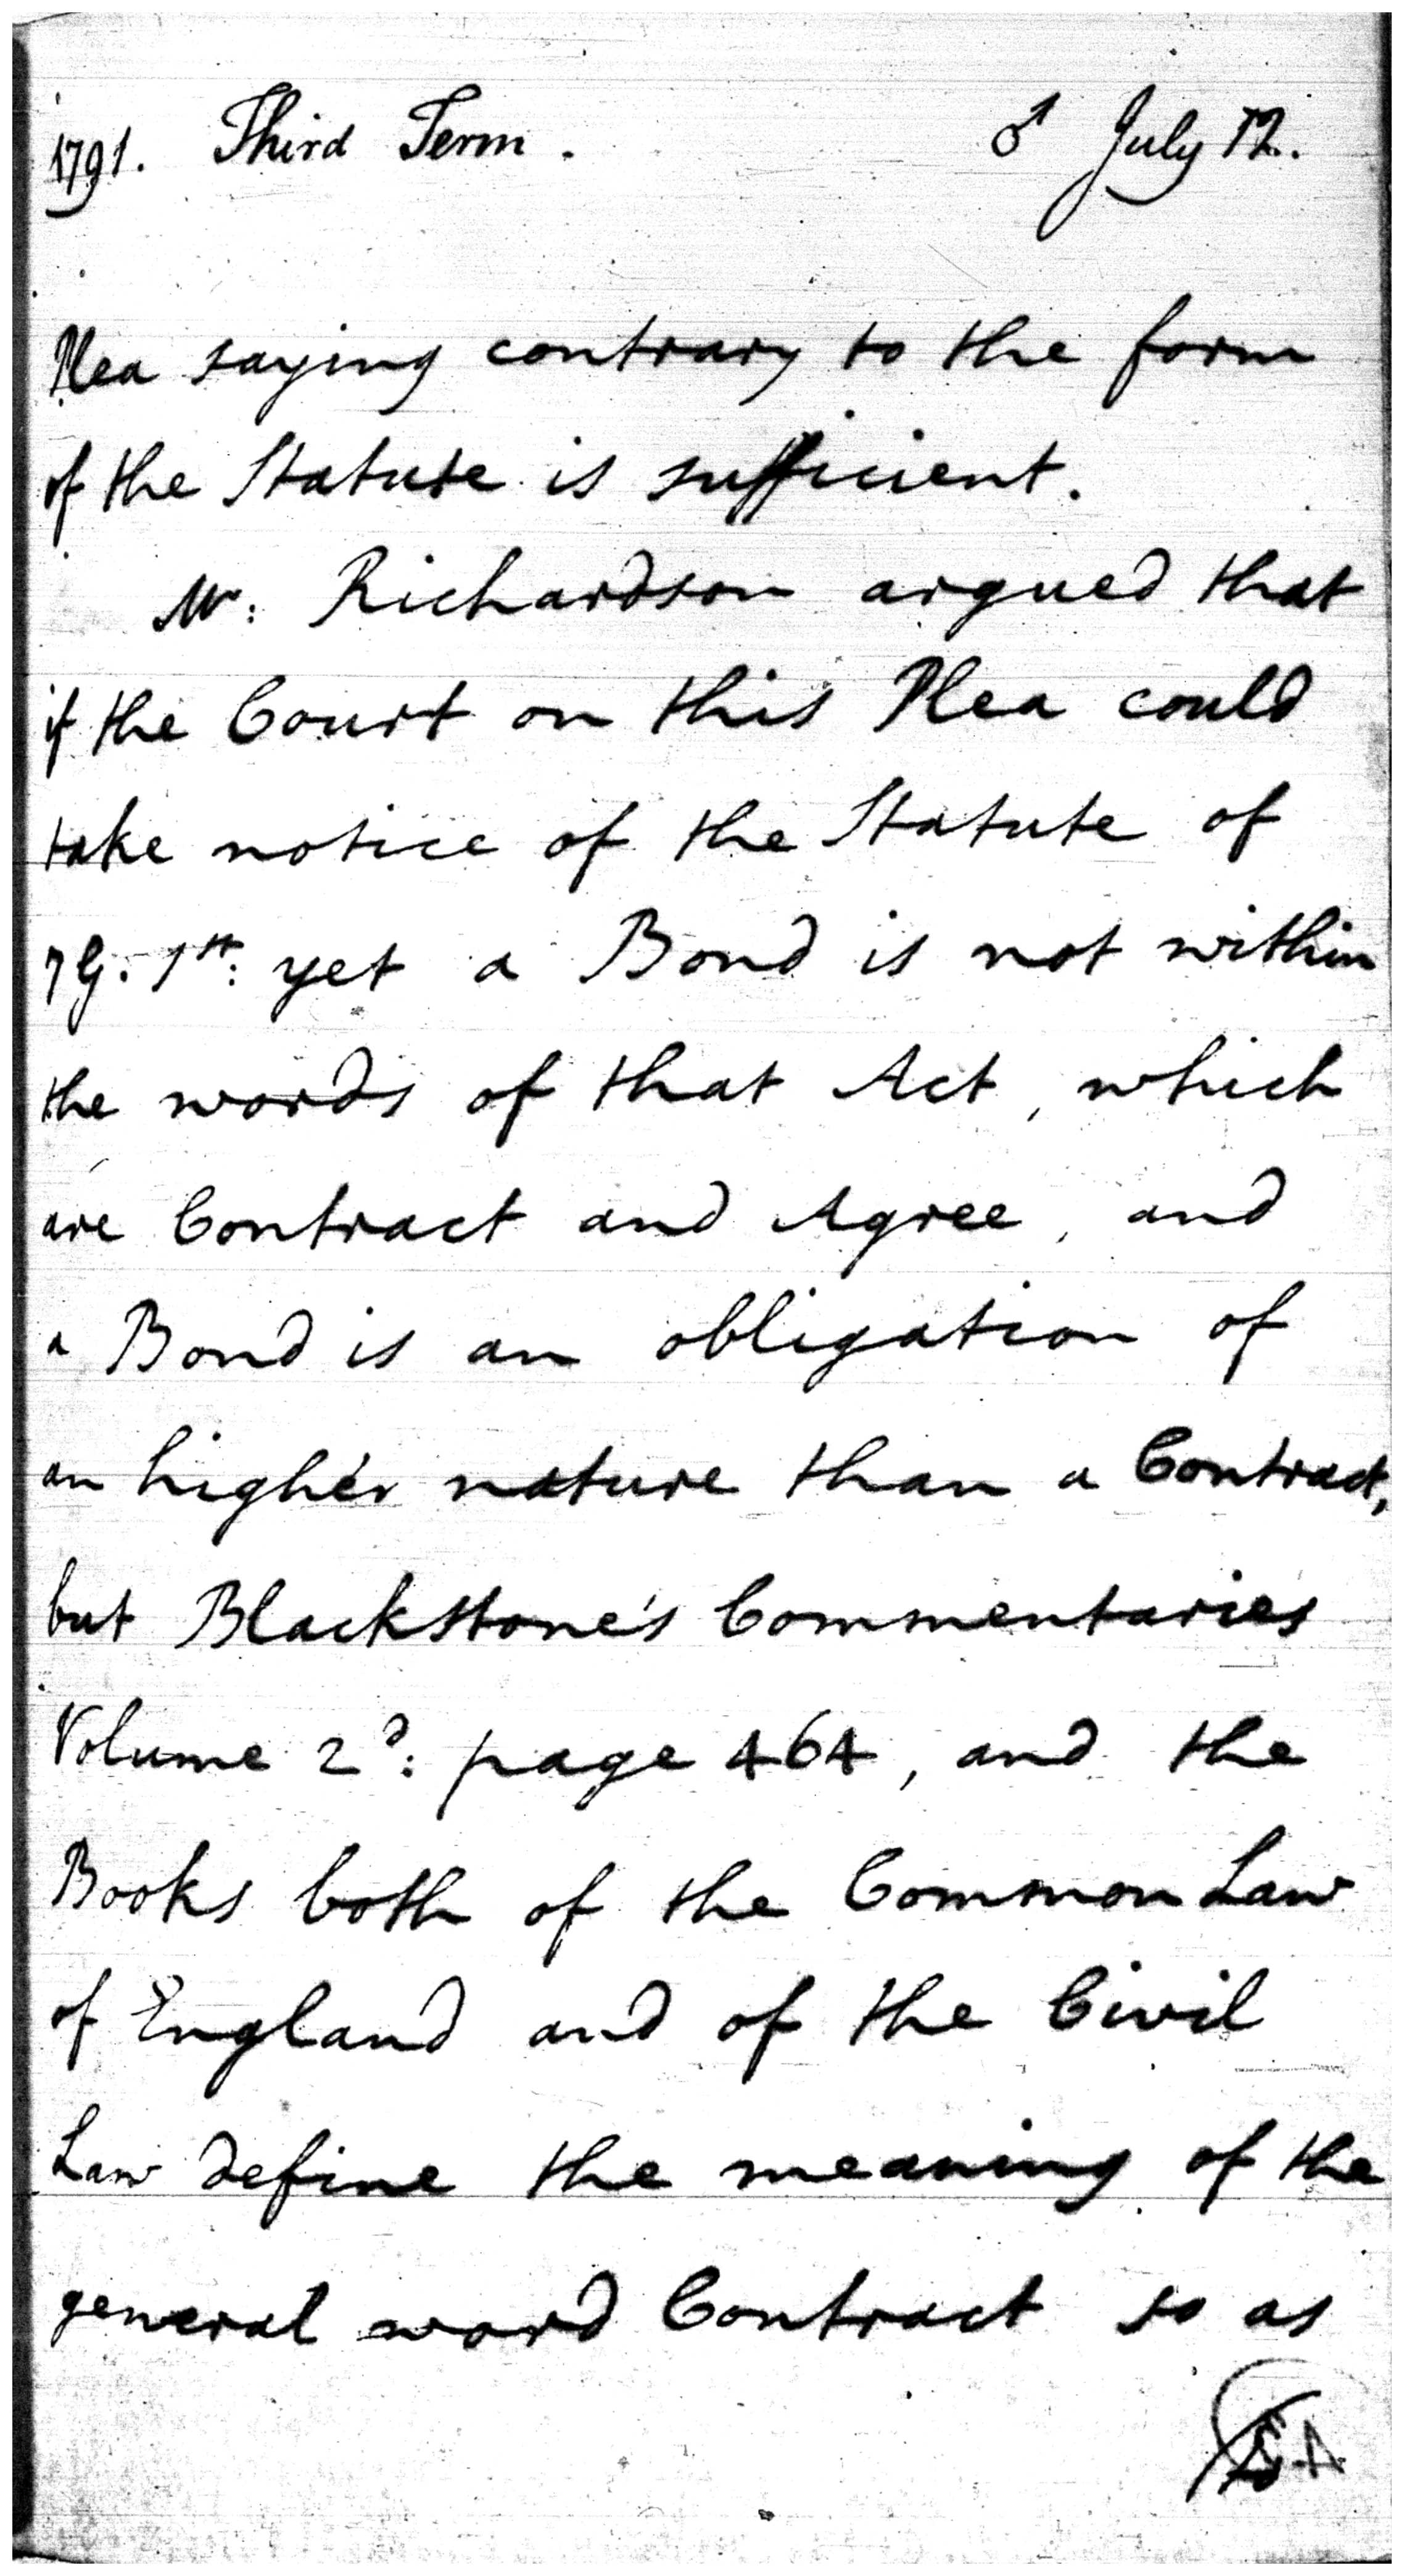 1791. Third Term. ♂ July 12.
Plea saying contrary to the form
of the Statute is sufficient.
Mr: Richardson argued that
if the Court on this Plea could
take notice of the Statute of
7 G. 1st: yet a Bond is not within
the words of that Act, which
are Contract and Agree, and
a Bond is an obligation of
an higher nature than a Contract,
but Blackstone's Commentaries
Volume 2d: page 464, and the
Books both of the Common Law
of England and of the Civil
Law define the meaning of the
general word Contract so as